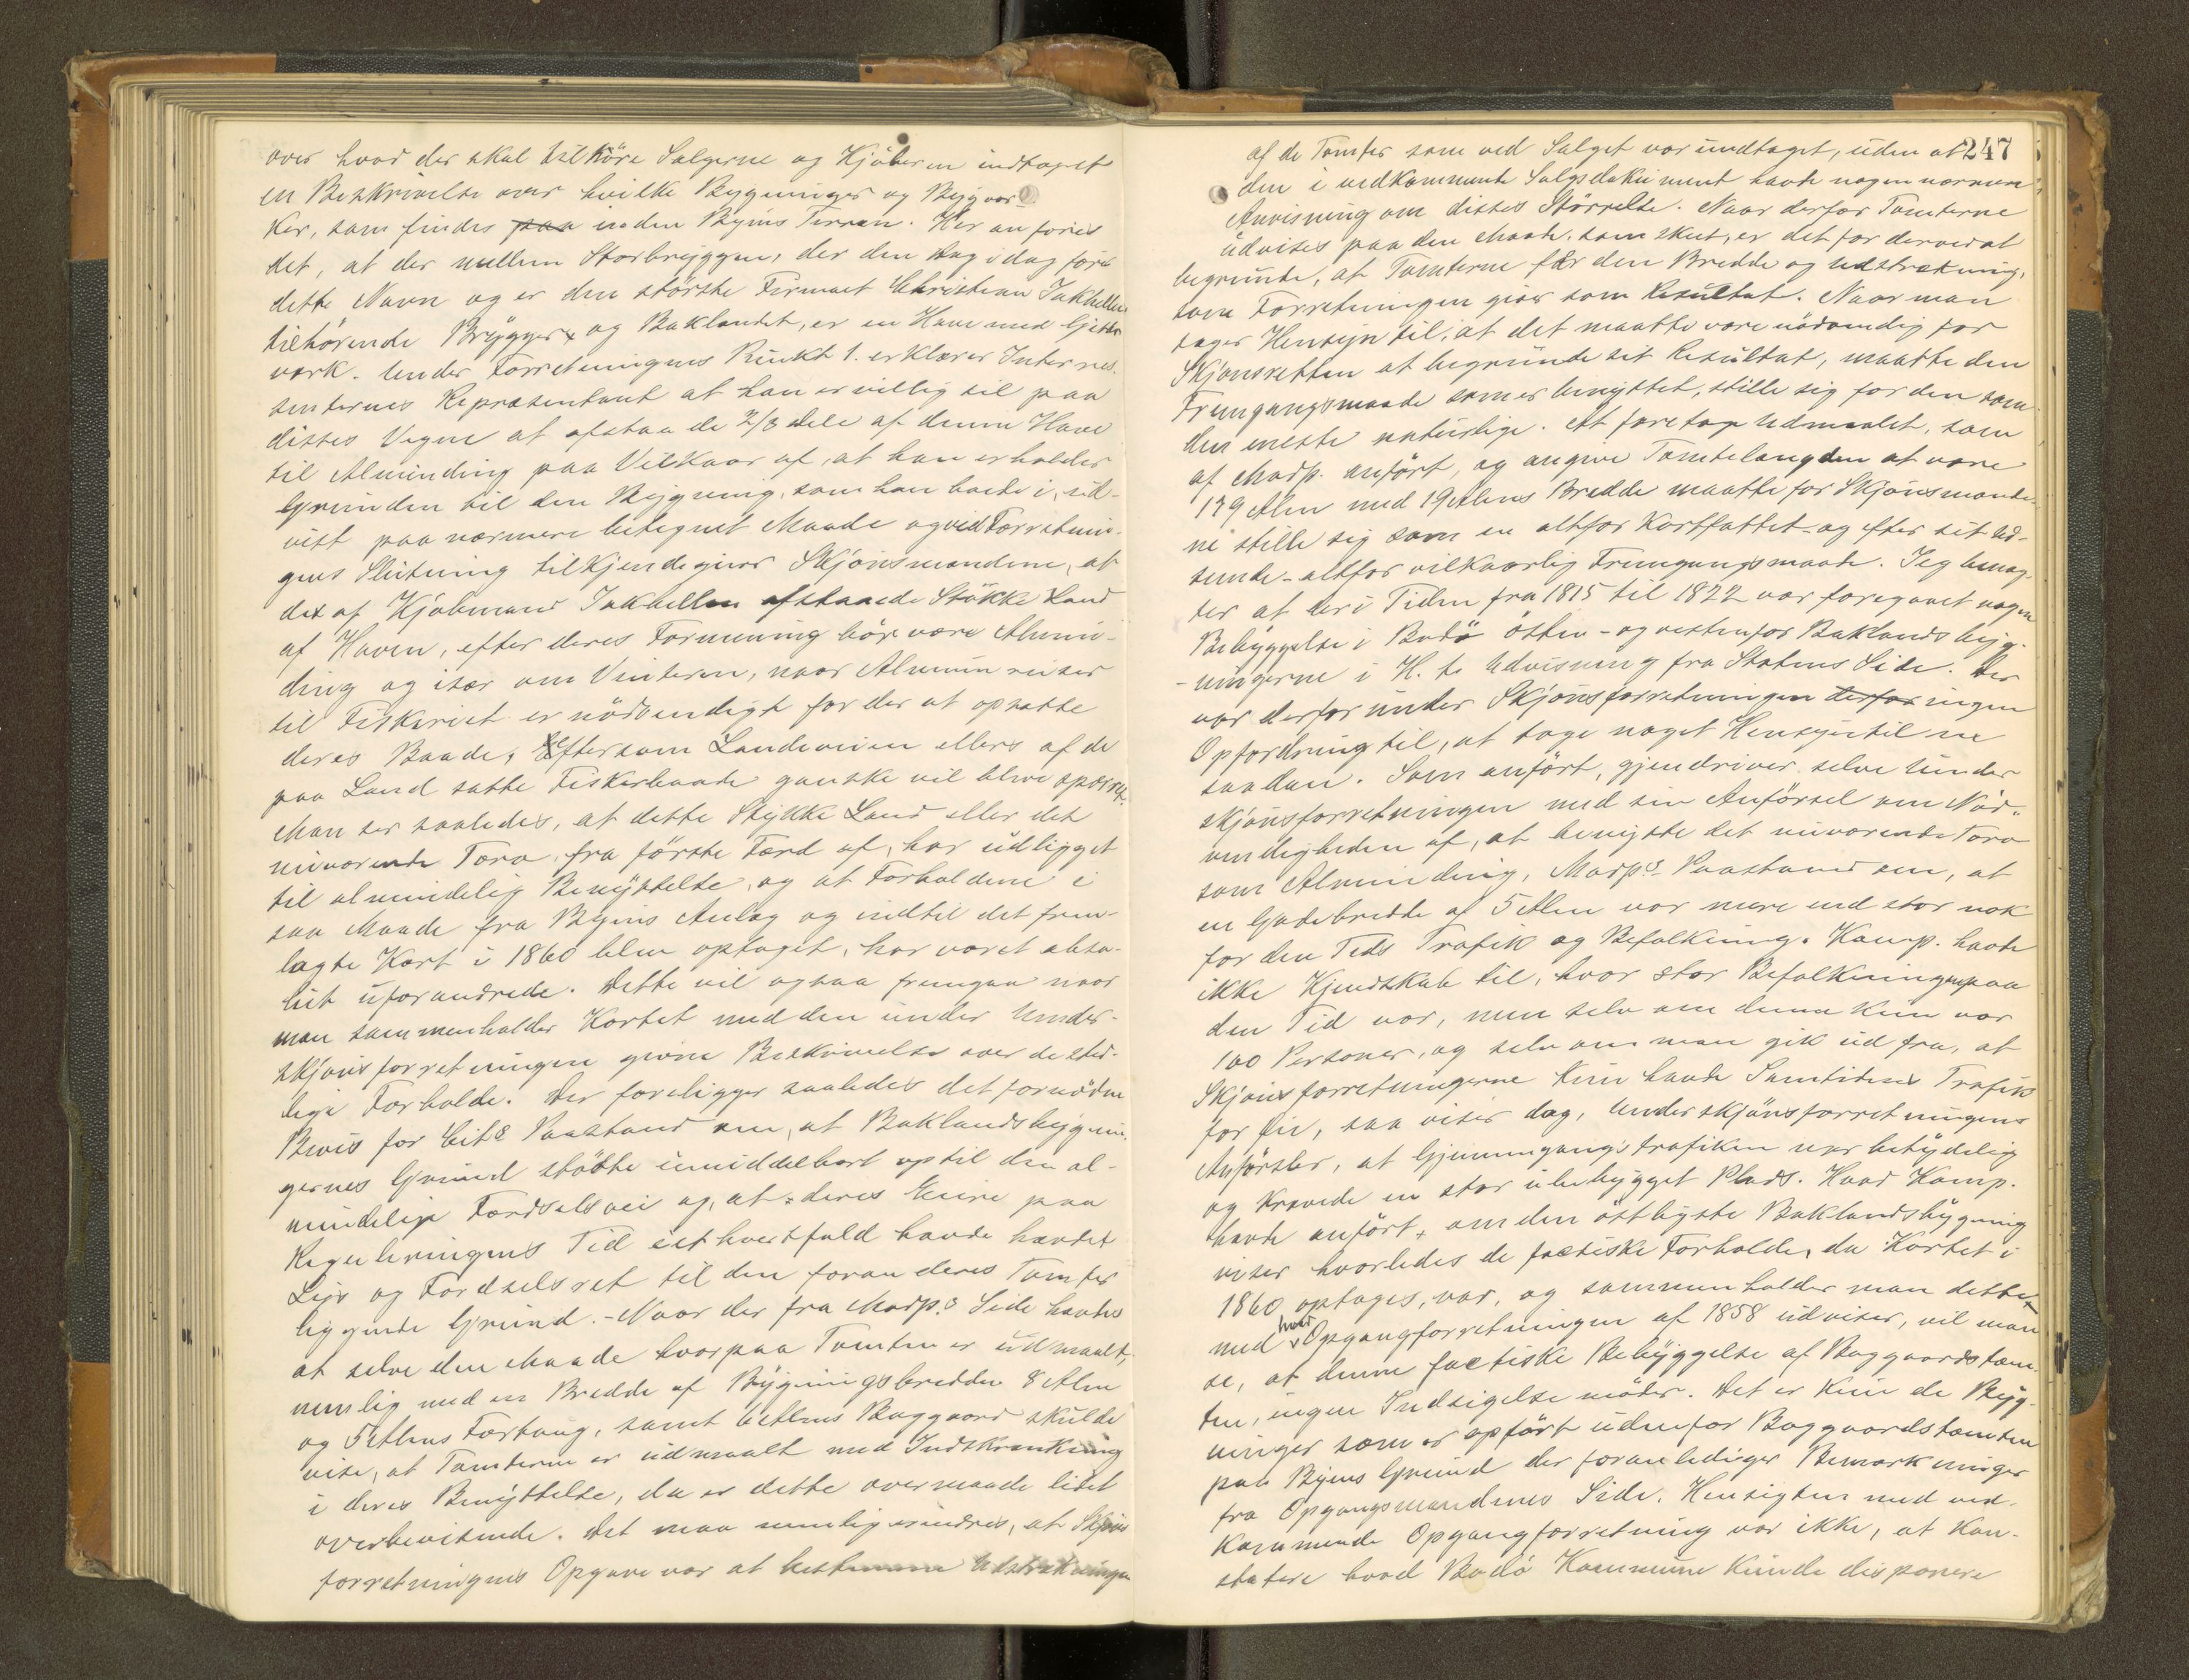 over hvad der skal tilhöre Selgerne og Kjöberen indtaget
en Beskrivelse over hvilke Bygninger og Bygvær-
ker, som findes paa inden Byens Terræn. Her anföres
det, at der mellem Storbryggen, der den Dag i dag förer
dette Navn og er den störste Firmaet Christian Jakhelln
tilhörende Brygger og Baklandet, er en Have med Gjerde
værk. Under Forretningens Punkt 1. erklærer Interes-
senternes Repræsentant at han er villig til paa
disses Vegne at afstaa de 2/3 Dele af denne Have
til Alminding paa Vilkaar af, at han erholder
Grunden til den Bygning, som han havde i, ud-
vist paa nærmere betegnet Maade og ved Forretnin-
gens Slutning tilkjendegiver Skjönsmændene, at
det af Kjöbmand Jakhelln afstaaede Stökke Land
af Haven, efter deres Formening bör være Almin-
ding og især om Vinteren, naar Almuen reiser
til Fiskeriet er nödvendigt for der at opsætte
deres Baade, Eftersom Landeveien ellers af de
paa Land satte Fiskerbaade ganske vil blive spærret.
Man ser saaledes, at dette Stykke Land eller det
nuværende Torv fra förste Færd af, har udligget
til almindelig Benyttelse, og at Forholdene i
saa Maade fra Byens Anlæg og indtil det frem-
lagte Kart i 1860 blev optaget, har været abso-
lut uforandrede. Dette vil ogsaa fremgaa naar
man sammenholder Kartet med den under Under-
skjönsforretningen givne Beskrivelse over de sted-
lige Forholde. Der foreligger saaledes det fornödne
Bevis for Cits Paastand om, at Baklandsbygnin-
gernes Grund stödte umiddelbart op til den al-
mindelige Færdselsvei og, at deres Eiere paa
Reguleringens Tid iethvertfald havde hævdet
Leje og Færdselsret til den foran deres Tomter
liggende Grund. - Naar der fra Modp.s Side hævdes
at selve den Maade hvorpaa Tomten er udmaalt,
nemlig med en Bredde af Bygningsbredden 8 Alen
og 5 Alens Fortoug, samt 6 Alens Baggaard skulde
vise, at Tomterne er udmaalt med Indskrænkning
i deres Benyttelse, da er dette overmaade lidet
overbevisende. Det maa nemlig erindres, at Skjöns
forretningens Opgave var at bestemme Udstrækningen
247
af de Tomter som ved Salget var undtaget, uden at
den i vedkommende Salgsdokument havde nogen nærmere
Anvisning om disses Störrelse. Naar derfor Tomterne
udvises paa den Maade, som skeet, er det for derved at
begrunde, at Tomterne får den Bredde og Udstrækning,
som Forretningen giver som Resultat. Naar man
tager Hensyn til, at det maatte være nödvendig for
Skjönsretten at begrunde sit Resultat, maatte den
Fremgangsmaade som er benyttet, stille sig for den som
den eneste naturlige. At foretage Udmaalet, som
af Modp. anfört, og angive Tomtelængden at være
139 Alen med 19 Alens Bredde maatte for Skjönsmænde-
ne stille sig som en altfor kortfattet - og efter sit Ud-
seende - altfor vilkaarlig Fremgangsmaade. Jeg benæg-
ter at der i Tiden fra 1815 til 1822 var foregaaet nogen
Bebyggelse i Bodö östen- og vestenfor Baklandsbyg-
- ningerne i H. t. Udvisning fra Statens Side. Der
var derfor under Skjönsforretningen derfor ingen
Opfordring til, at tage noget Hensyn til en
saadan. Som anfört, gjendriver selve Under
skjönsforretningen med sin Anförsel om Nöd-
vendigheden af, at benytte det nuværende Torv
som Alminding, Modp.s Paastand om, at
en Gadebredde af 5 Alen var mere end stor nok
for den Tids Trafik og Befolkning. Komp. havde
ikke Kjendskab til, hvor stor Befolkningen paa
den Tid var, men selv om denne kun var
100 Personer, og selv om man gik ud fra, at
Skjönsforretningerne kun havde Samtidens Trafik
for Öie, saa viser dog, Underskjönsforretningens
Anförsler, at Gjennemgangstrafiken var betydelig
og krævede en stor ubebygget Plads. Hvad Komp.
havde anfört, om den östligste Baklandsbygning
viser hvorledes de factiske Forholde, da Kortet i
1860 optages, var, og sammenholder man dette
med hvad Opgangforretningen af 1858 udviser, vil man
se, at denne factiske Bebyggelse af Baggaardstom-
ten, ingen Indsigelse möder. Det er kun de Byg-
ninger som er opfört udenfor Baggaardstomten
paa Byens Grund der foranlediger Bemærkninger
fra Opgangsmændenes Side. Hensigten med ved-
kommende Opgangforretning var ikke, at kon-
statere hvad Bodö Kommune kunde disponere